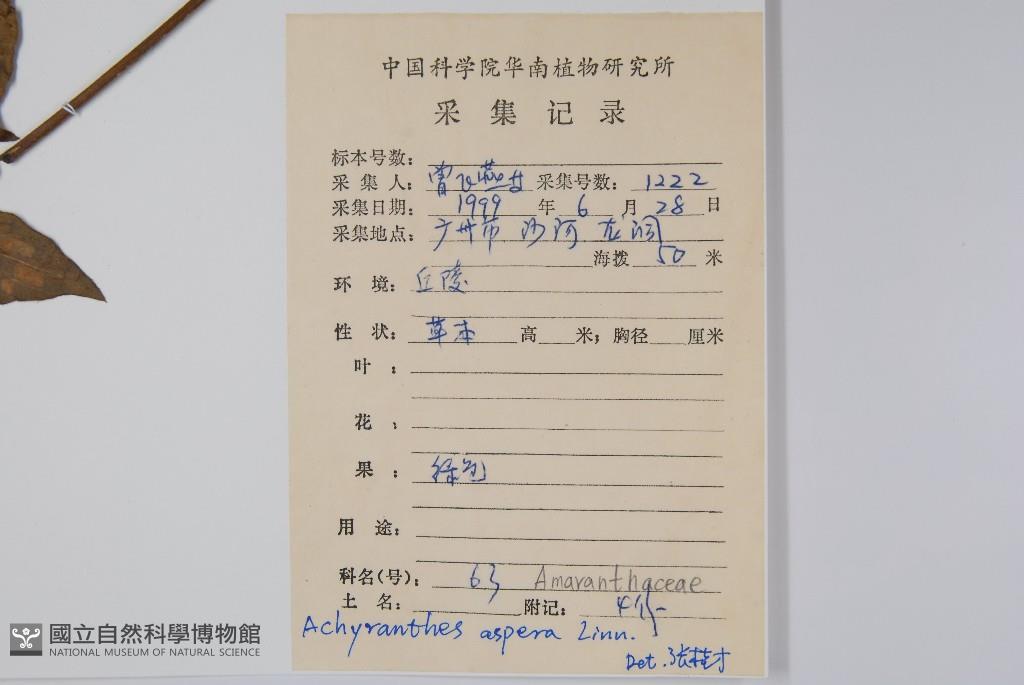 中国科学院华南植物研究所
采集记录
标本号数：
采集人：曾飞燕 采集号数：1222
采集日期：1999年6月28日
采集地点：广州市 沙河 龙洞
海拨 50 米
环境：丘陵
性状：草本 高 米；胸径 厘米
叶：
花：
果：绿色
用途：
科名(号)：63 Amaranthaceae
土名： 附记：4份
Achyranthes aspera Linn.
Det. 张桂才
國立自然科學博物館
NATIONAL MUSEUM OF NATURAL SCIENCE